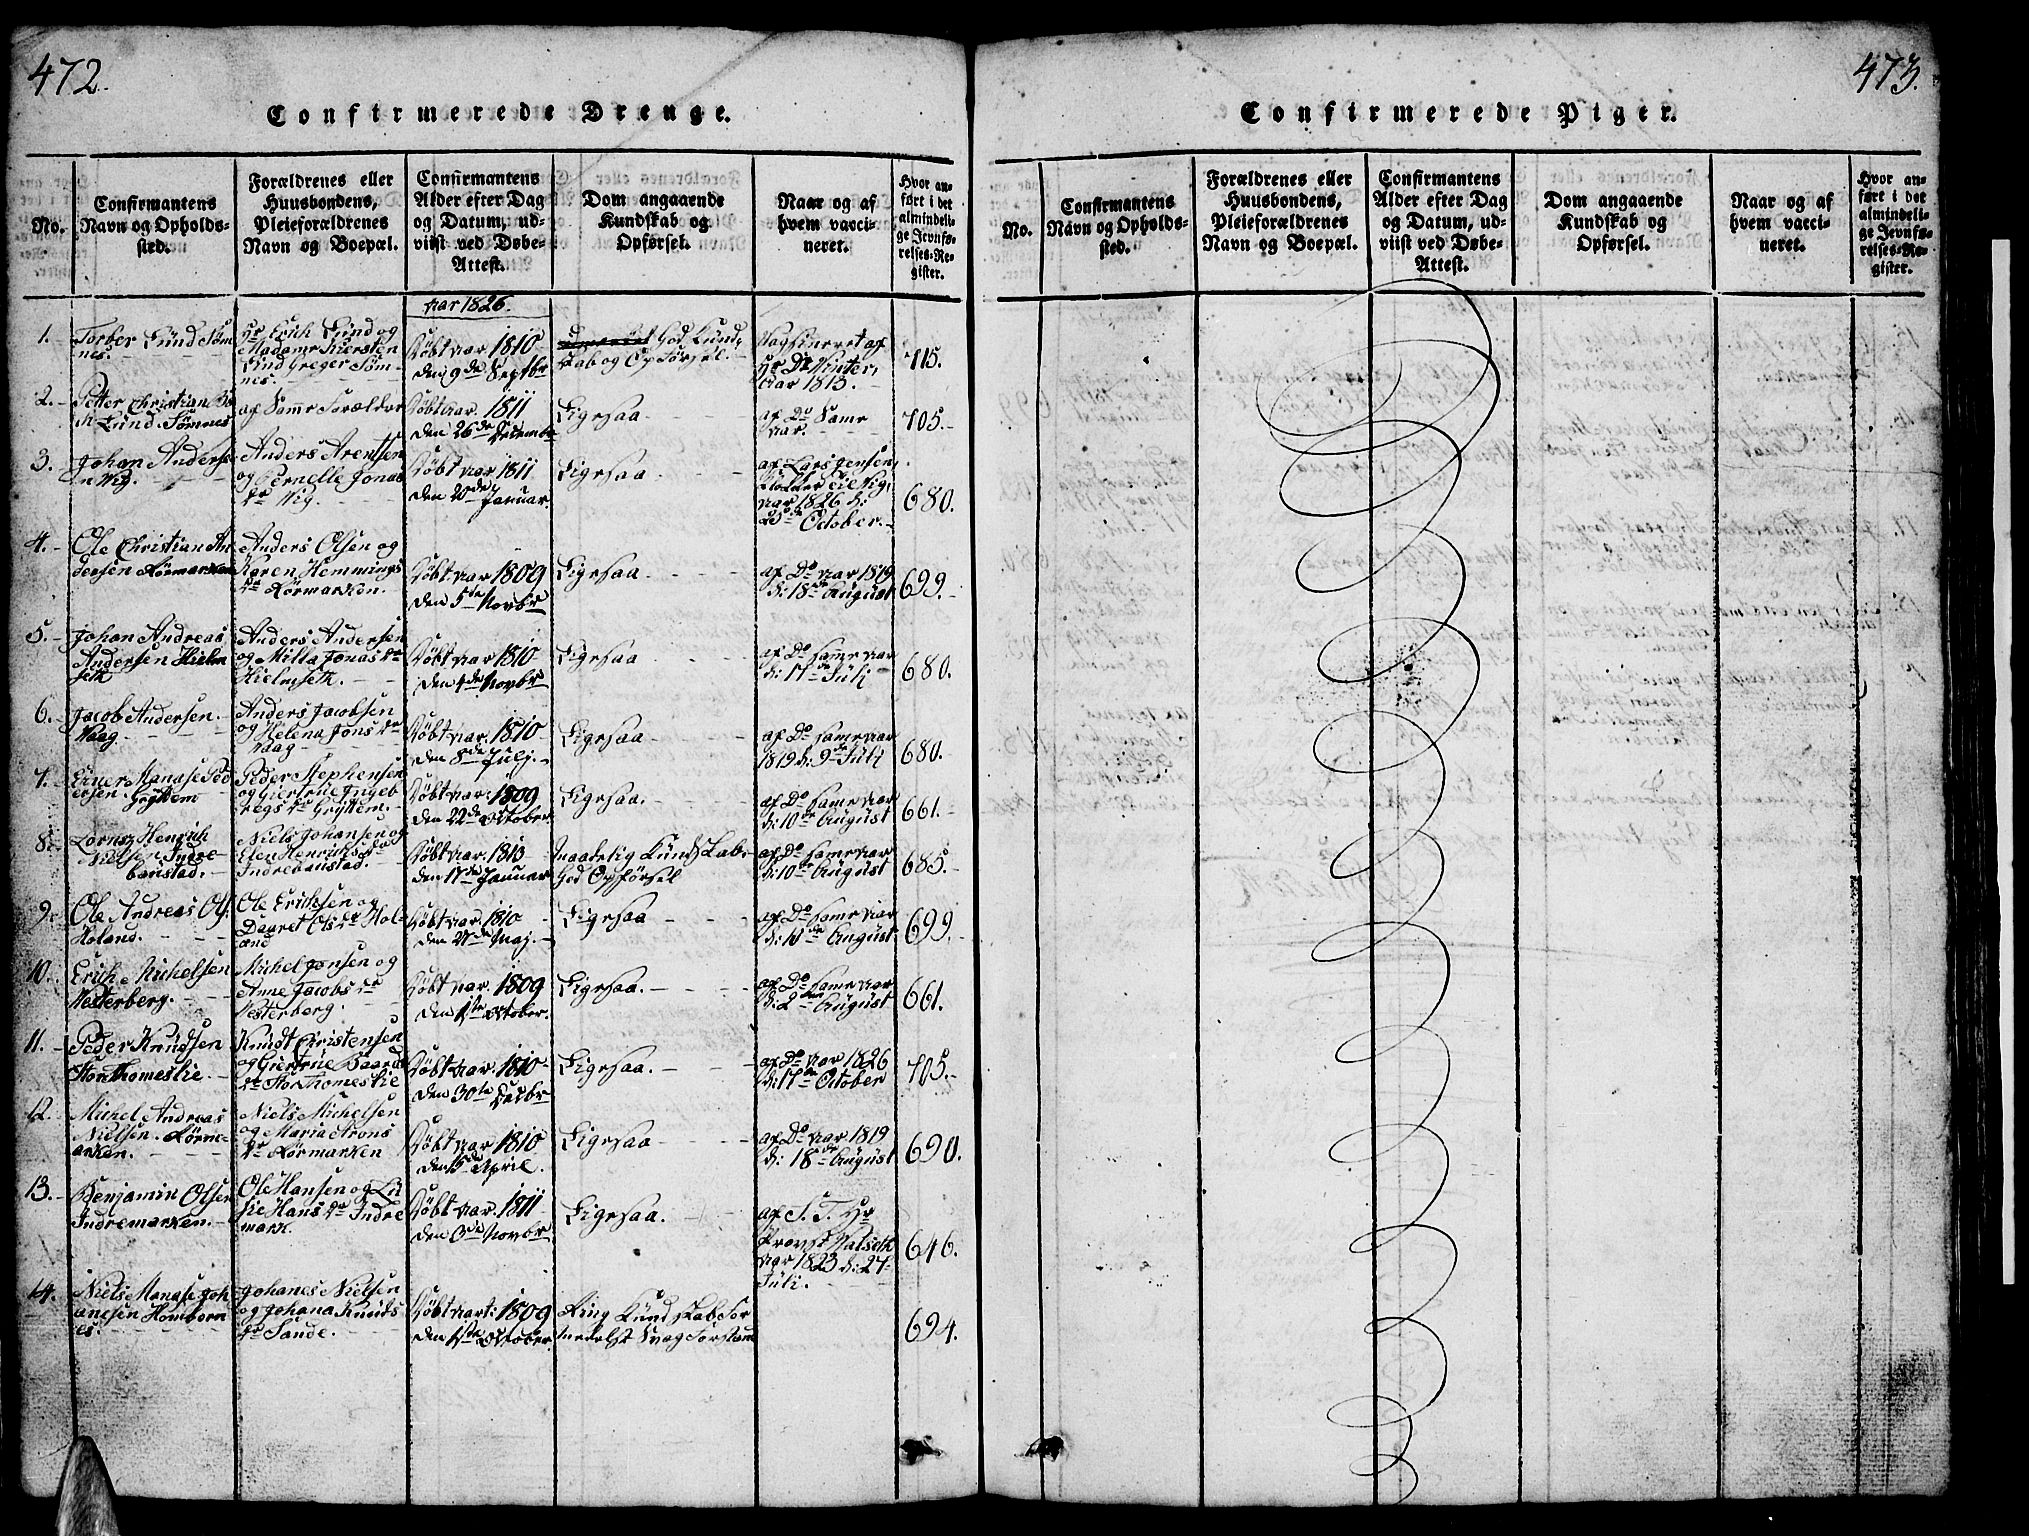 472.
Confirmerede Drenge.
No.
Confirmantens
Navn og Opholds-
sted.
Forældrenes eller
Huusbondens,
Pleieforældrenes
Navn og Boepæl.
Confirmantens
Alder efter Dag
og Datum, ud-
viist ved Døbe-
Attest.
Dom angaaende
Kundskab og
Opførsel.
Naar og af
hvem vacci-
neret.
Hvor an-
ført i det
almindeli-
ge Jevnfø-
relses-Re-
gister.
Aar 1826.
1.
Torber Lund Søm-
nes.
Hr Erich Lund og
Madame Kiersten
Lund Greger Søm-
nes.
Døbt Aar 1810
den 9de Septbr
God Kund-
skab og Opførsel.
Vaksineret af
Hr Dr Winter,
Aar 1813.
715.
2.
Petter Christian Bø-
Lund Sømnes
af Samme Forældre
Døbt Aar. 1811
den 26de Decembr
Ligesaa
af Do Samme
Aar.
705.
3.
Johan Anders-
n Wig.
Anders Arentsen
og Pernelle Jonas
Dr Wig.
Døbt Aar 1811
den 20de Januar.
Ligesaa
af Lars Jensen,
Klokker til Wig,
Aar 1826 d:
25de October.
680.
4.
Ole Christian An-
dersen Rørmarken
Anders Olsen og
Karen Hemmings
Dr Rørmarken.
Døbt Aar 1809
den 5de Novbr
Ligesaa
af Do Aar 1819
d: 18de August
699.
5.
Johan Andreas
Andersen Hielm
seth
Anders Andersen
og Milla Jonas Dr
Hielmseth.
Døbt Aar 1810
den 4de Novbr
Ligesaa
af Do samme Aar
d: 17de Juli
680.
6.
Jacob Andersen
Vaag.
Anders Jacobsen
og Helena Jons Dr
Vaag
Døbt Aar. 1810
den 8de Julj.
Ligesaa
af Do samme Aar
1819 d: 9de Juli
680.
7.
Einer Manase Ped
ersen. Gryttem
Peder Stephensen
og Giertrue Ingeb
regs Dr Gryttem.
Døbt Aar: 1809
den 22de October
Ligesaa.
af Do samme Aar
d: 10de August
661.
8.
Lornz Henrich
Nielsen Indre
banstad.
Niels Johansen og
Elen Henrichs Dr
Indrebanstad.
Døbt Aar. 1813
den 17de Januar
Maadelig Kundskab.
God Opførsel
af Do samme Aar
d: 10de August
685.
9.
Ole Andreas Ols
Holand.
Ole Erichsen og
Daaret Ols Dr Hol-
and
Døbt Aar. 1810
den 27de Maj.
Ligesaa
af Do samme Aar
d: 10de August
699.
10.
Erich Michelsen
Vesterberg.
Michel Jonsen og
Anne Jacobs Dr
Vesterberg.
Døbt Aar. 1809
den 1ste October.
Ligesaa.
af Do samme Aar
d: 2den August
661.
11.
Peder Knudsen
StorThomeslie.
Knudt Christensen
og Giertrue Baards
Dr StorThomeslie
Døbt Aar 1810
den 30te Decbr
Ligesaa.
af Do Aar 1826
d: 17de October
705.
12.
Michel Andreas
Nielsen. Rørm-
arken.
Niels Michelsen
og Maria Arons
Dr Rørmarken
Døbt Aar 1810
den 15de April.
Ligesaa
af Do Aar 1819
d: 18de August
690.
13.
Benjamin Olsen
Indremarken.
Ole Hansen og Lu-
sie Hans Dr Indre
mark.
Døbt Aar. 1811
den 3de Novbr
Ligesaa.
af S. T. Hr
Provst Walseth
Aar 1823 d: 27
Juli.
646.
14.
Niels Manase Joh
anesen Homborn
es.
Johanes Nielsen
og Johana Knuds
Dr Sande.
Døbt Aar: 1809
den 1ste October.
Ring Kundskab for
medelst Svag Forstand
694.
473.
Confirmerede Piger.
No.
Confirmantens
Navn og Opholds-
sted.
Forældrenes eller
Huusbondens,
Pleieforældrenes
Navn og Boepæl.
Confirmantens
Alder efter Dag
og Datum, ud-
viist ved Døbe-
Attest.
Dom angaaende
Kundskab og
Opførsel.
Naar og af
hvem vacci-
neret.
Hvor an-
ført i det
almindeli-
ge Jevnfø-
relses-Re-
gister.